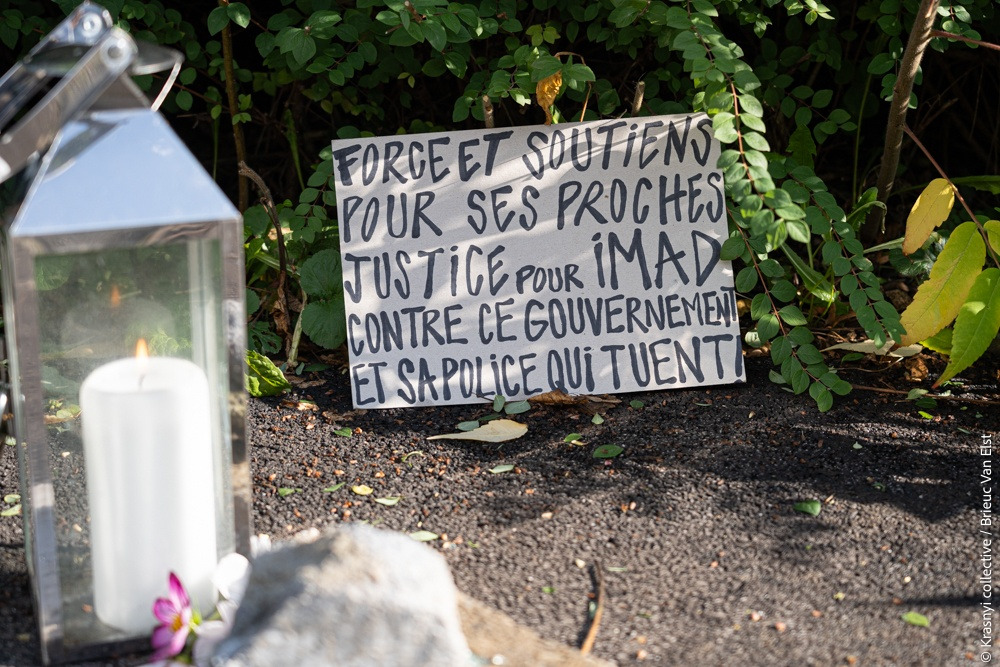 FORCE ET SOUTIENS
POUR SES PROCHES
JUSTICE POUR IMAD
CONTRE CE GOUVERNEMENT
ET SA POLICE QUI TUENT!
© Krasnyi collective / Brieuc Van Elst